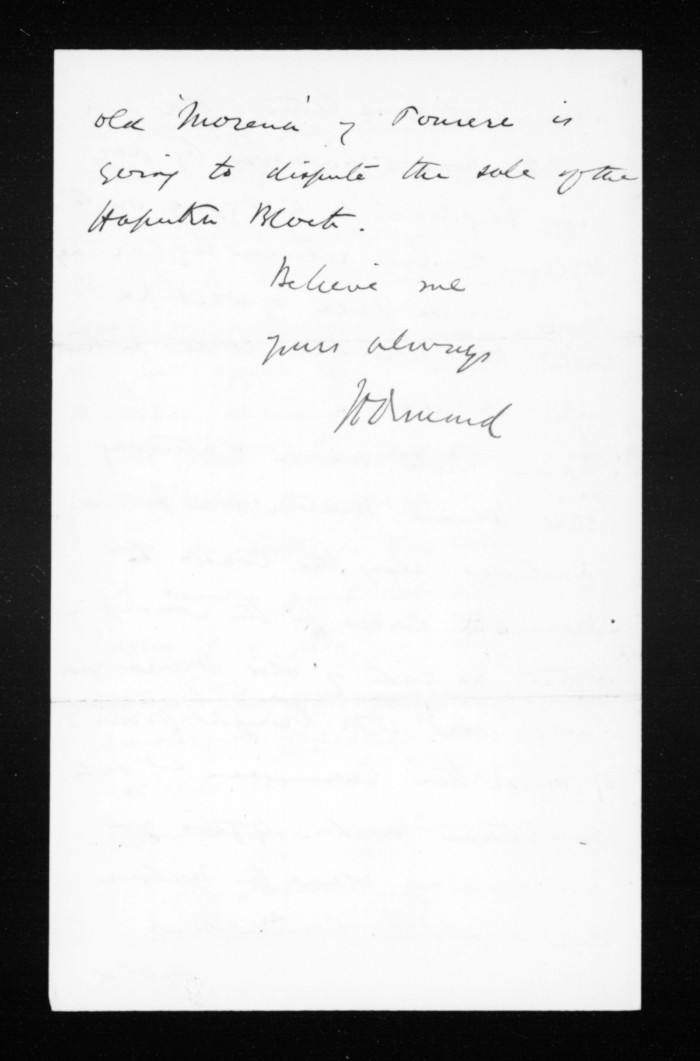 old 'Morena' of Pourere is
going to dispute the sale of the
Hapuku Block.
Believe me
yours always
JDOrmond